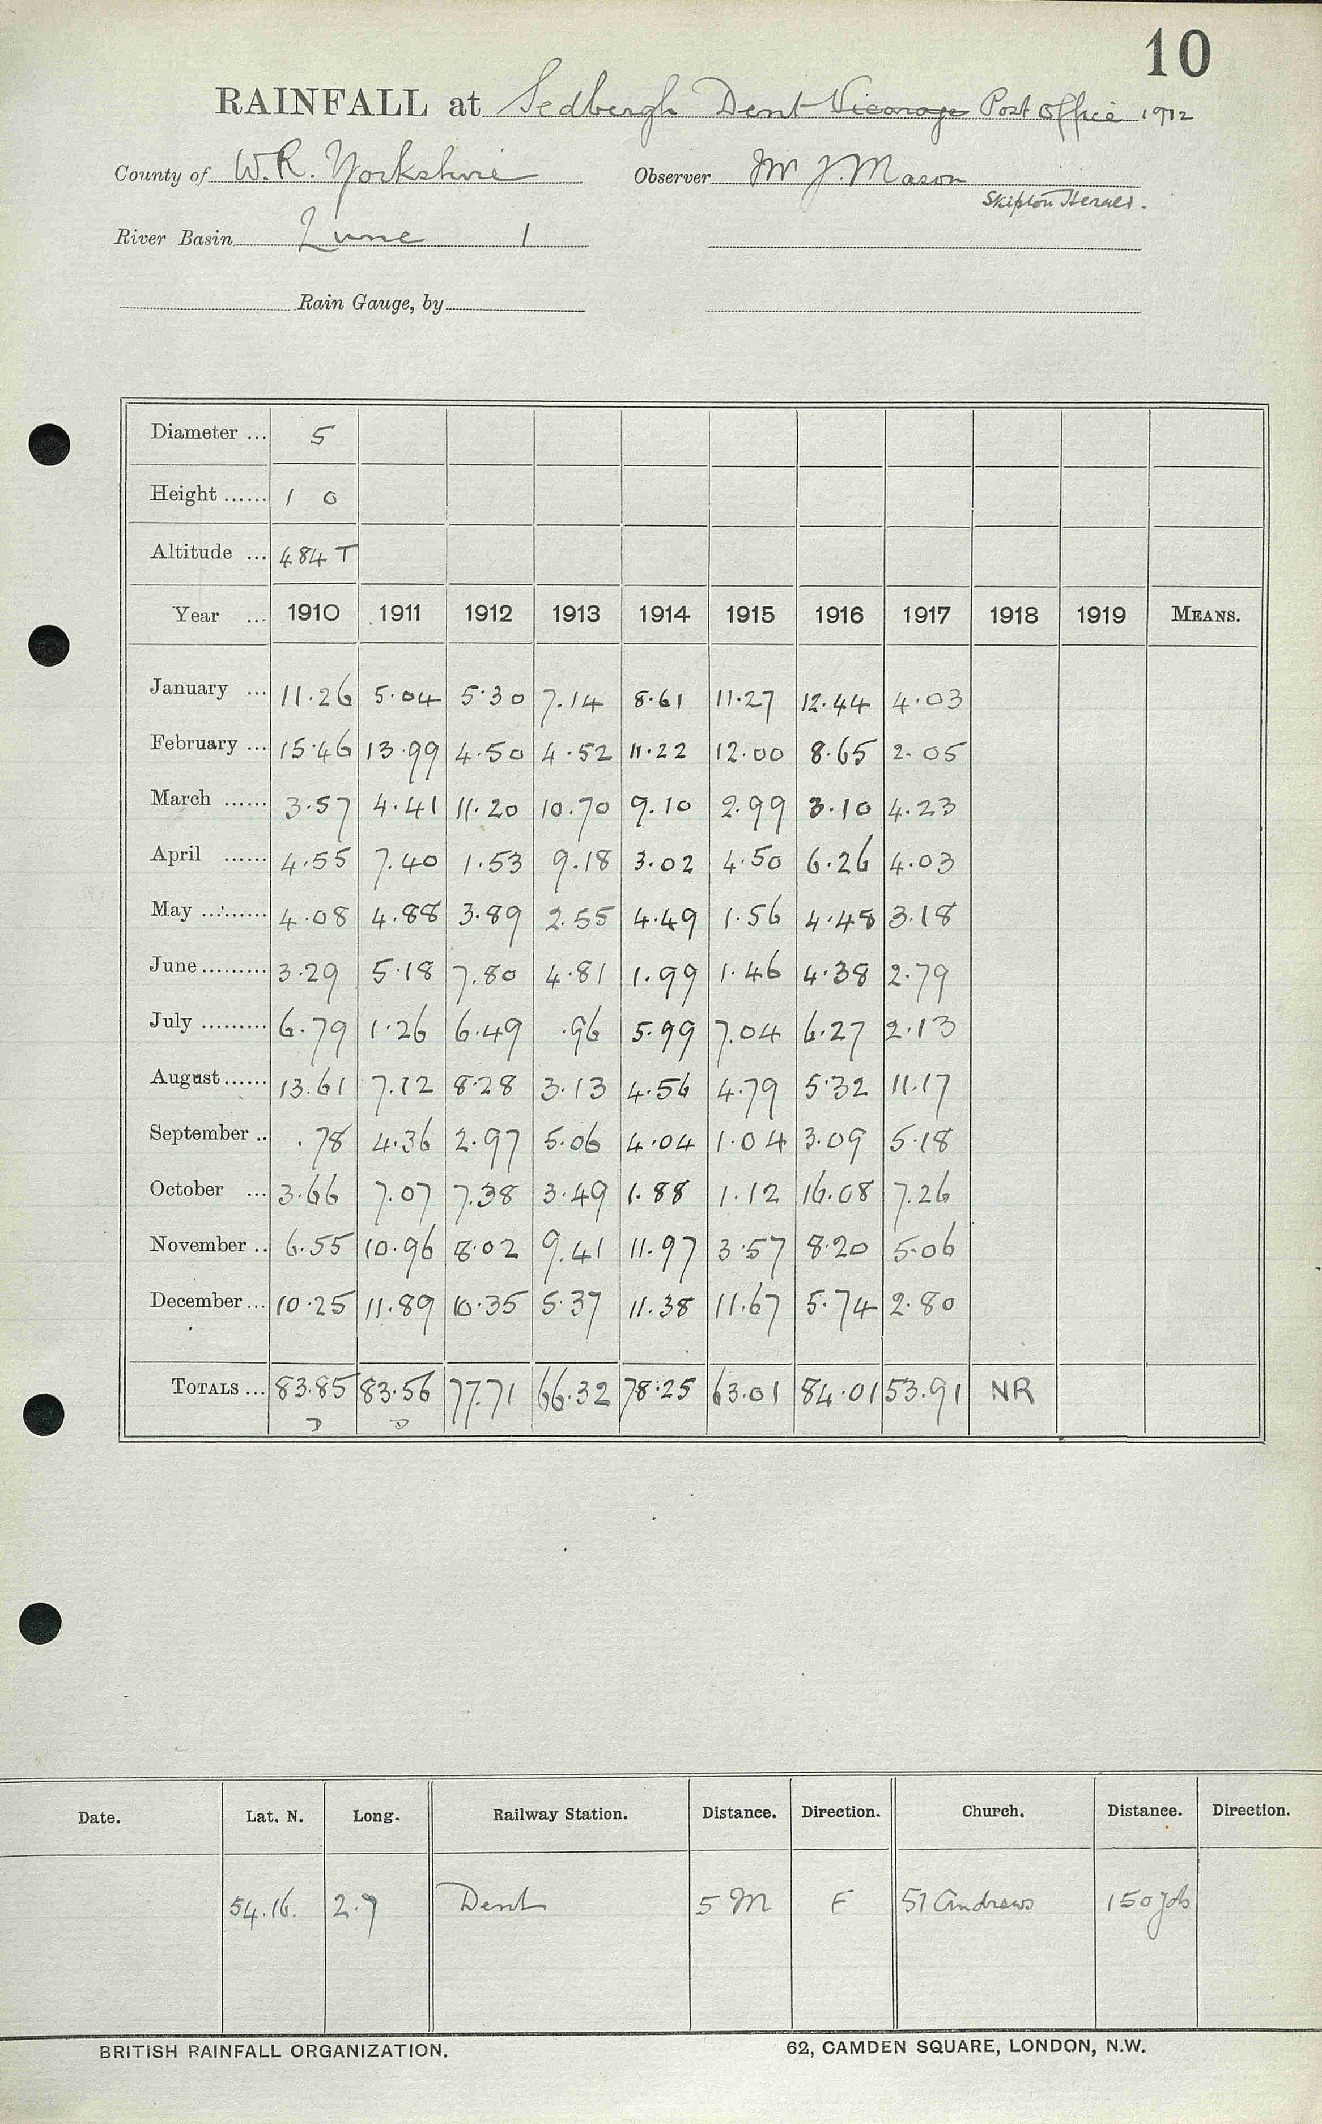 10
RAINFALL at Sedbergh Dent Vicarage Post Office 1912
County of W.R. Yorkshire Observer Mr J. Mason
Skipton Herald.
River Basin Lune 1
Rain Gauge, by
Diameter ... 5
Height ...... 1 0
Altitude ... 484 T
Year ... 1910 1911 1912 1913 1914 1915 1916 1917 1918 1919 MEANS.
January ... 11.26 5.04 5.30 7.14 8.61 11.27 12.44 4.03
February ... 15.46 13.99 4.50 4.52 11.22 12.00 8.65 2.05
March ...... 3.57 4.41 11.20 10.70 9.10 2.99 3.10 4.23
April ...... 4.55 7.40 1.53 9.18 3.02 4.50 6.26 4.03
May ......... 4.08 4.88 3.89 2.55 4.49 1.56 4.48 3.18
June ......... 3.29 5.18 7.80 4.81 1.99 1.46 4.38 2.79
July ......... 6.79 1.26 6.49 .96 5.99 7.04 6.27 2.13
August ...... 13.61 7.12 8.28 3.13 4.56 4.79 5.32 11.17
September .. .78 4.36 2.97 5.06 4.04 1.04 3.09 5.18
October ... 3.66 7.07 7.38 3.49 1.88 1.12 16.08 7.26
November .. 6.55 10.96 8.02 9.41 11.97 3.57 8.20 5.06
December ... 10.25 11.89 10.35 5.37 11.38 11.67 5.74 2.80
TOTALS ... 83.85 83.56 77.71 66.32 78.25 63.01 84.01 53.91 NR
Date. Lat. N. Long. Railway Station. Distance. Direction. Church. Distance. Direction.
54.16. 2.7 Dent 5 M E St Andrews 150 yds
BRITISH RAINFALL ORGANIZATION. 62, CAMDEN SQUARE, LONDON, N.W.